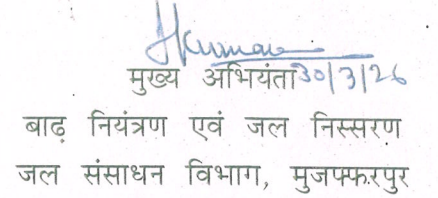 Jkumar
मुख्य अभियंता 30/3/26
बाढ़ नियंत्रण एवं जल निस्सरण
जल संसाधन विभाग, मुजफ्फरपुर